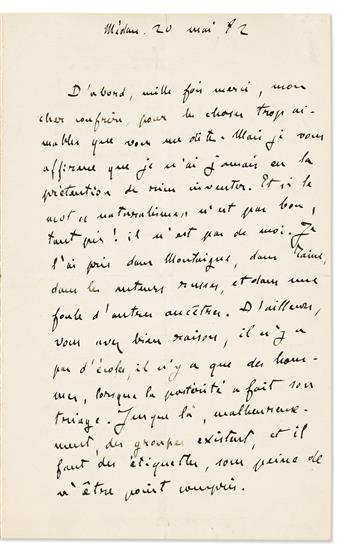 Médan. 20 mai 82
D'abord, mille fois merci, mon
cher confrère, pour les choses trop ai-
mables que vous me dites. Mais je vous
affirme que je n'ai jamais eu la
prétention de rien inventer. Et si le
mot « naturalisme » n'est pas bon,
tant pis ! il n'est pas de moi. Je
l'ai pris dans Montaigne, dans Taine,
dans les auteurs russes, et dans une
foule d'autres ancêtres. D'ailleurs,
vous avez bien raison, il n'y a
pas d'école, il n'y a que des hom-
mes, lorsque la postérité a fait son
triage. Jusque là, malheureuse-
ment, des groupes existent, et il
faut des étiquettes, sous peine de
n'être point compris.